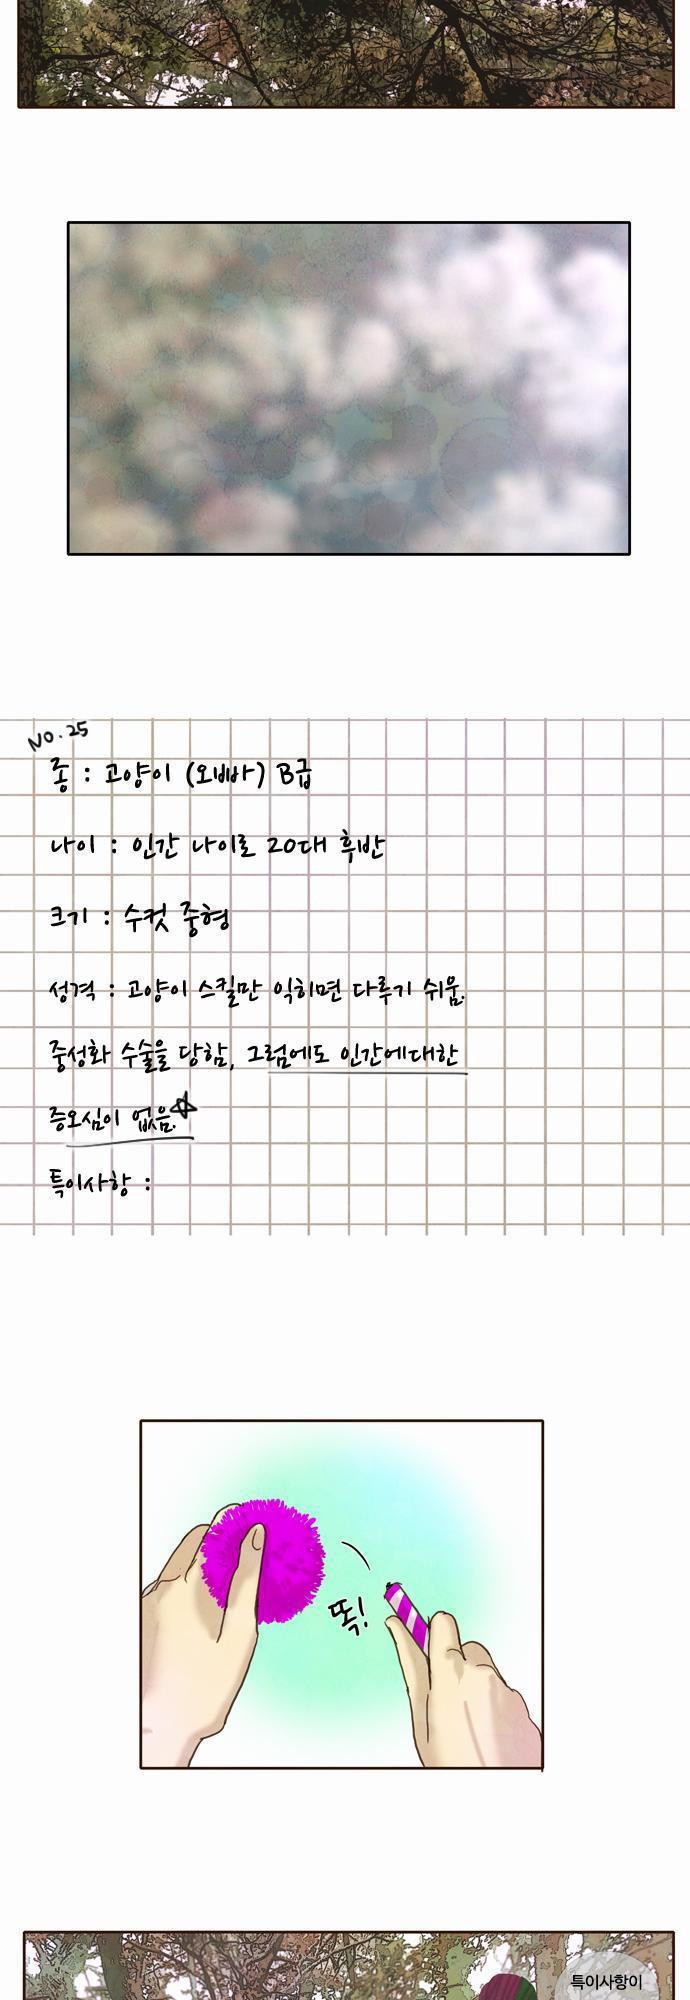 NO.25
종 : 고양이 (오빠) B급
나이 : 인간 나이로 20대 후반
크기 : 수컷 중형
성격 : 고양이 스킬만 익히면 다루기 쉬움.
중성화 수술을 당함, 그럼에도 인간에대한
증오심이 없음.☆
특이사항 :
똑!
특이사항이